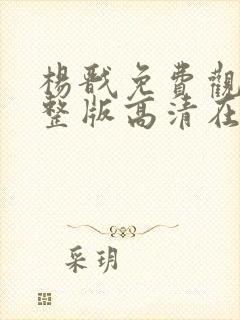 楊戩免費觀
整版高清在
采玥